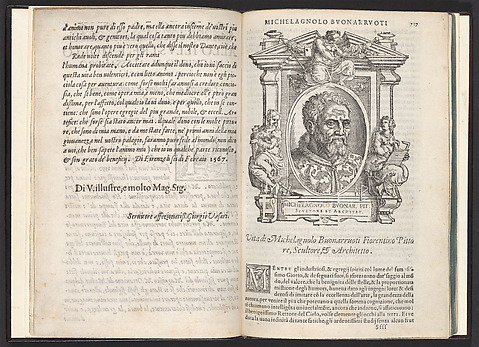 d'animo non pure di esso padre, ma ella ancora insieme de' vostri piu
antichi auoli, & genitori, la qual cosa tanto piu debbiamo ammirare,
et honorare, quanto piu è vero quello, che disse il nostro Dante, cioè, che
Rade volte discende per gli rami
l'humana probitate. Accettate adunque il dono, che io vi faccio di
questa mia ben volentieri, e con lieto animo: percioche non è egli pic
ciola cosa per auentura: come forse molti
cia, che se bene, come opera mia,
dissima, per l'affetto, col quale io la vi dono, e per quello, che in se con
tiene: che sono l'opere egregie del piu grande, nobile, & eccell. Ar
tefice: che forse sia stato ancor mai: il quale dono con le molte pittu
re, che sono di mia mano, e da me state fatte, ne' primi anni della mia
giouanezza, nel vostro palagio, saranno pure fede al mondo, non dico
a voi, che ben sapete l'animo mio; che io in qualche parte riconosco,
& son grato de benefizij. Di Firenze, 6 di Febraio 1567.
Di V. illustre, e molto Mag. Sig.
Seruitore affezionatiss. Giorgio Vasari.
MICHELAGNOLO BVONARRVOTI
717
MICHELAGNOLO BVONAR. PIT.
SCVLTORE ET ARCHITET.
Vita di Michelagnolo Buonarruoti Fiorentino Pitto
re, Scultore, & Architetto.
MENTRE gl'industriosi, & egregij spiriti col lume del famosis
simo Giotto, & de seguaci suoi, si sforzauano dar saggio al mō
do, del valore, che la benignità delle stelle, & la proportionata
mistione degli humori, haueua dato agl'ingegni loro: & desi
derosi di imitare cō la eccellenza dell'arte, la grandezza della
natura, per venire il piu che poteuano a quella somma cognizione, che mol
ti chiamano intelligēza: vniuersalmēte, ancora che indarno, si affaticauano
il benignissimo Rettore del Cielo, volse clemente gl'occhi alla terra. E ve
duta la vana infinità di tante fatiche, gli ardentissimi studij senza alcun frut